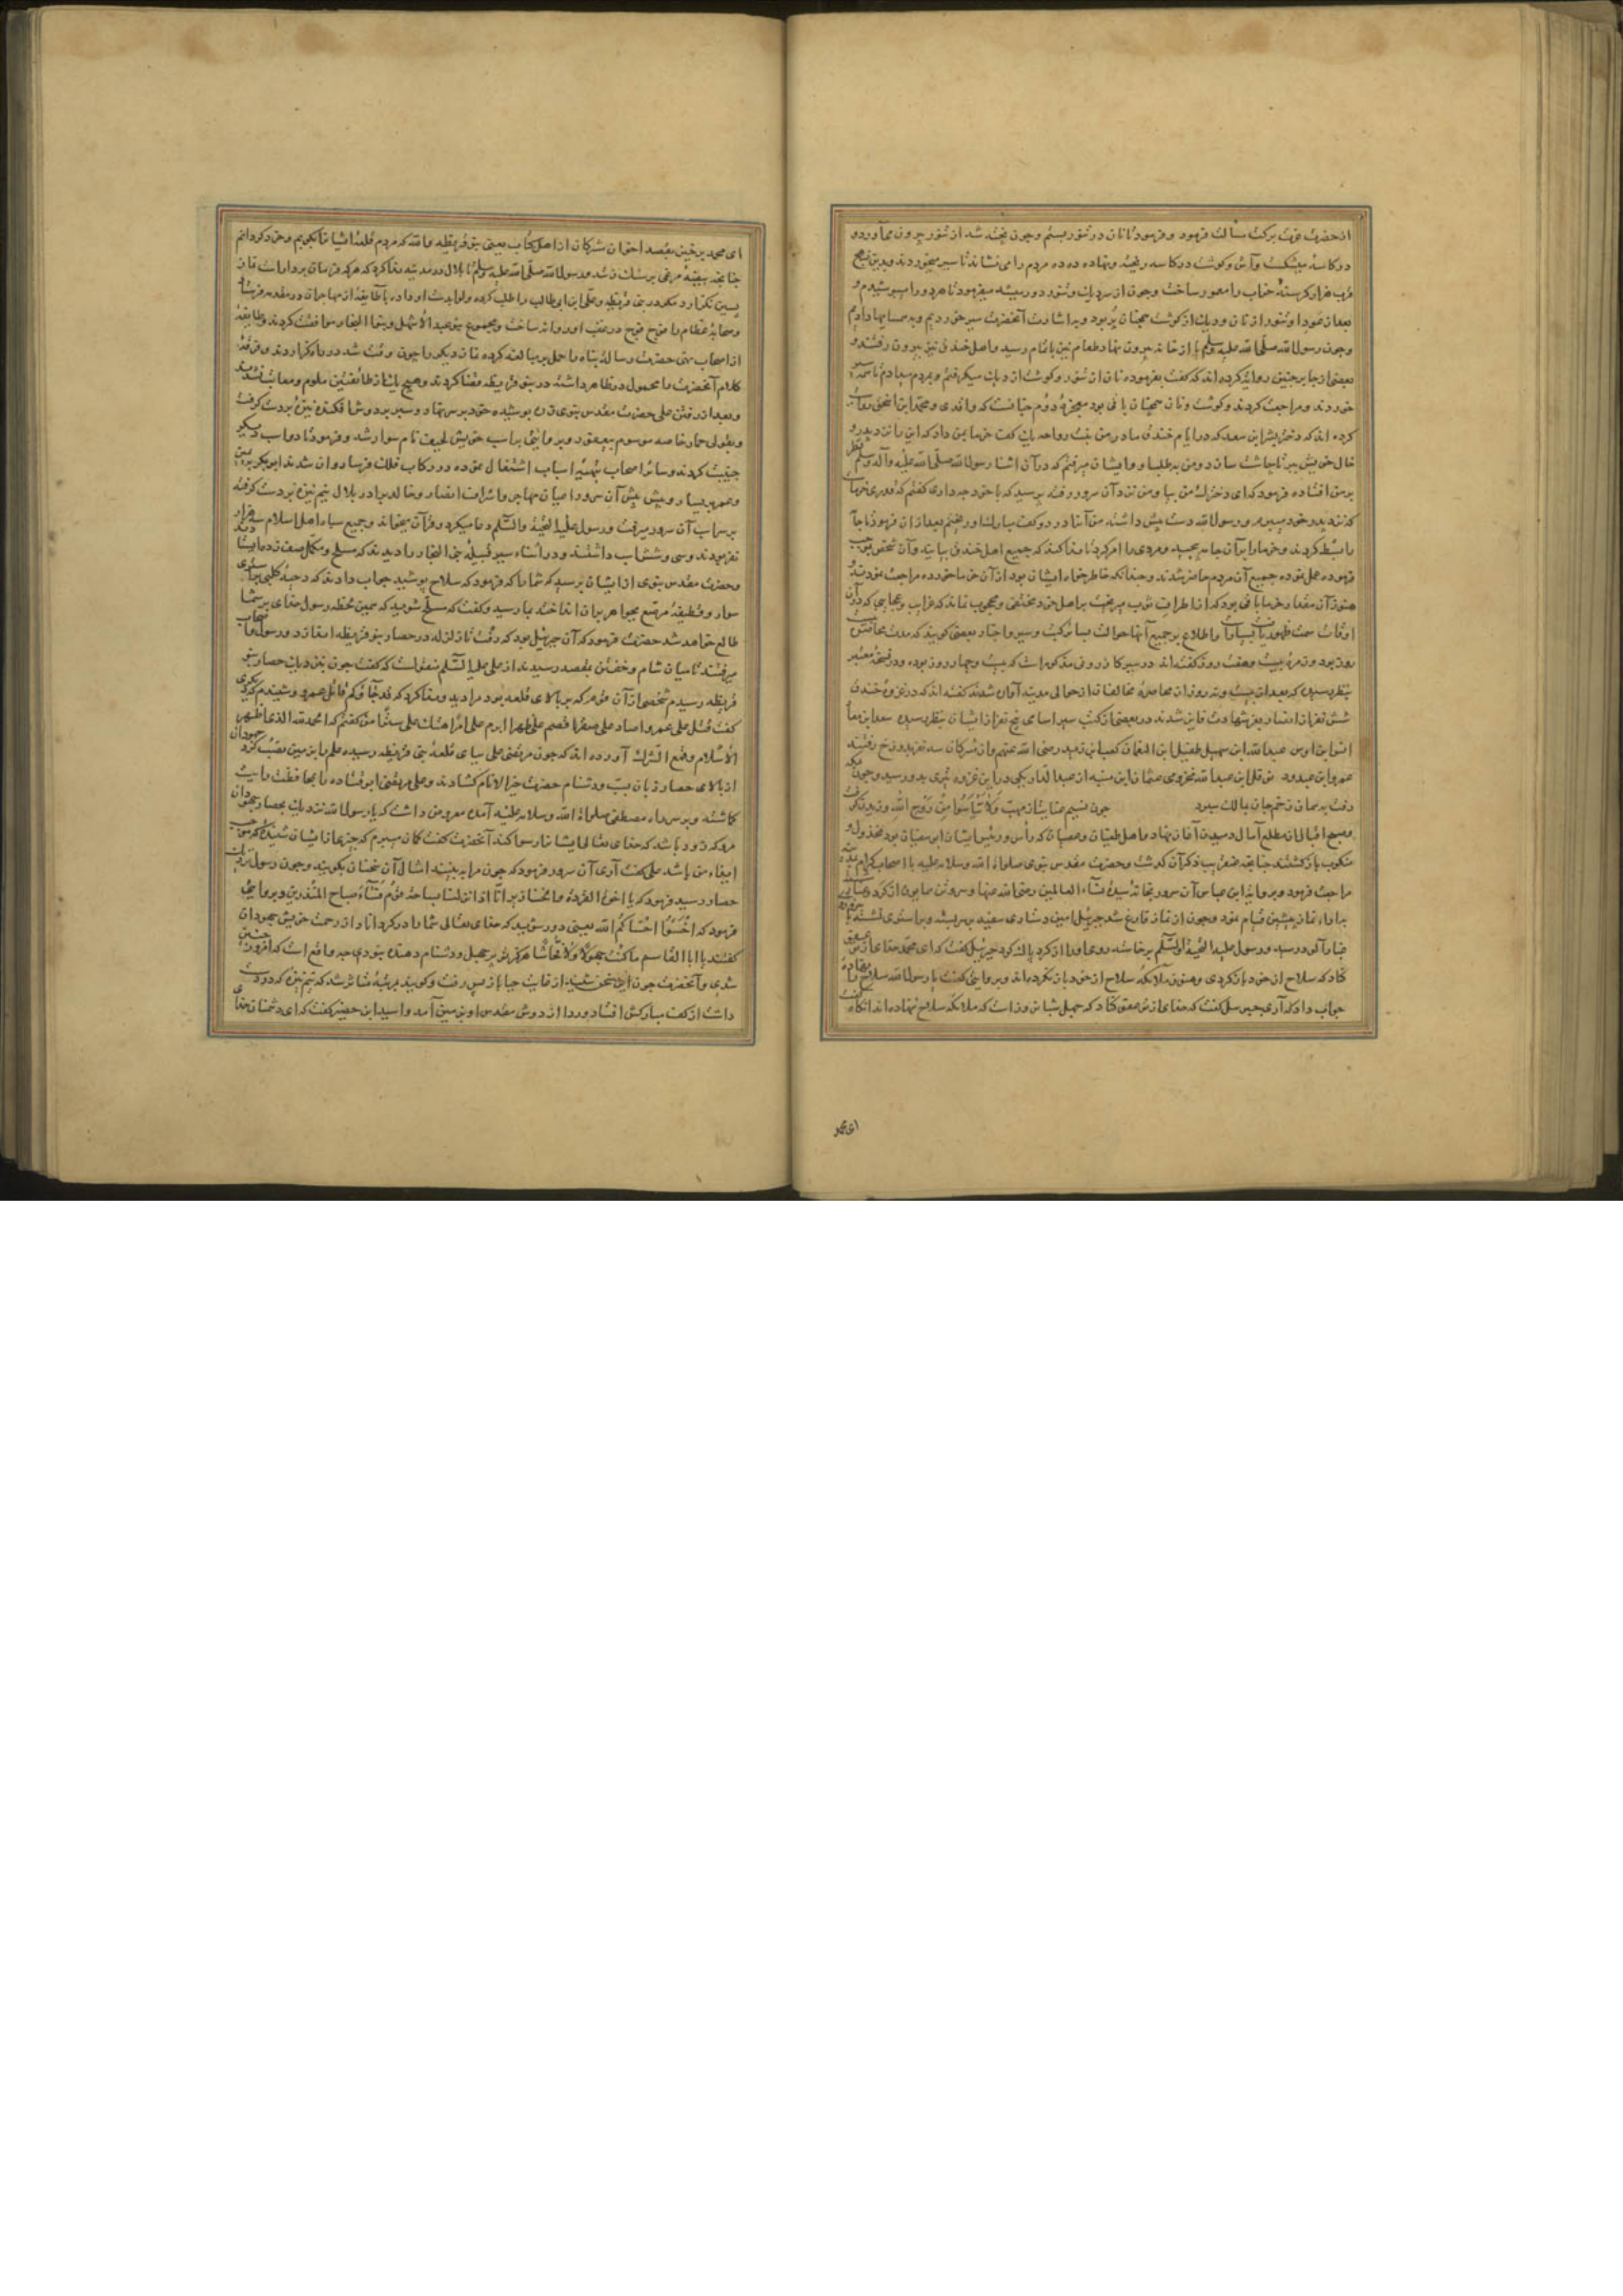 از حضرت قوت برکت مسألت فرمود و فرمود تا نان در تنور بستم و چون پخته شد از تنور بیرون می‌آوردو
در کاسه میشکست و آش و گوشت در کاسه ریخته و نهاده ده ده مردم را می نشاند تا سیر میخوردند و بدین نهج
قرب هزار کرسنهٔ خراب را معمور ساخت و چون از سر دیک و تنور دور میشد میفرمود تا هر دو را میپوشیدم و
بعد از عود او تنور از نان و دیک از گوشت همچنان پر بود و به اشارت آنحضرت سیر خوردیم و به همسایها دادیم
و چون رسول الله صلی الله علیه وسلم از خانه بیرون نهاد طعام نیز باتمام رسید و اهل خندق نیز بیرون رفتند و
بعضی از جابر چنین روایت کرده اند که گفت بفرموده نان از تنور و گوشت از دیک میگرفتم و بمردم میدادم تا همه سیر
خوردند و مراجعت کردند و گوشت و نان همچنان باقی بود معجزهٔ دوم چنانست که واقدی و محمد ابن اسحق روایت
کرده اند که دختر بشر ابن سعد که در ایام خندق مادر من بنت رواحه یک کف خرما بمن داد که این را نزد پدر و
خال خویش ببر تا چاشت سازند و من به طلب او و ایشان میرفتم که در آن اثنا رسول الله صلی الله علیه وآله وسلم نظر
بر من افتاده فرمود که ای دخترک من بیا و من نزد آن سرور رفته پرسید که با خود چه داری گفتم که قدری خرماست
که نزد پدر خود میبرم و رسول الله دست پیش داشته من آنرا در دو کف مبارک او ریختم بعد از آن فرمود تا جامه
را بسط کردند و خرما را بر آن جامه و مردی را امر کرد تا ندا کند که جمیع اهل خندق بیایند و آن شخص بموجب
فرموده عمل نموده جمیع آن مردم حاضر شدند و چندانکه خاطر خواه ایشان بود از آن خرما خورده مراجعت نمودند و
هنوز آن مقدار خرما باقی بود که از اطراف ثوب میریخت بر اهل خرد مختفی و محجوب نماند که غرایب و عجایبی که در آن
اوقات سمت ظهور یافت بسیار است و اطلاع بر جمیع آنها حوالت بسایر کتب و سیر و اخبار و بعضی گویند که مدت محاصره بیست
روز بود و زمرهٔ بیست و هفت روز گفته‌اند در سیر کازرونی مذکور است که بیست و چهار روز بوده و در نسخهٔ معتبر
بنظر رسیده که بعد از بیست و نه روز از محاصرهٔ مخالفان از حوالی مدینه آواره شدند گفته‌اند که در غزوهٔ خندق
شش نفر از انصار بعز شهادت فایز شدند در بعضی از کتب سیر اسامی پنج نفر از ایشان بنظر رسیده سعد ابن معاذ
انس ابن اوس عبدالله ابن سهیل طفیل ابن النعمان کعب ابن زید رضی الله عنهم و از مشرکان سه نفر بدوزخ رفتند
عمرو ابن عبدود نوفل ابن عبدالله مخزومی عثمان ابن منبه از عبدالدار یکی در این غزوه تیری بدو رسید و چون بمکه
رفت به همان زخم جان بمالک سپرد چون نسیم عنایت از مهب وَلَا تَیأَسُوا مِن رَوحِ اللهِ وزیدن گرفت
و صبح اقبال از مطلع آمال دمیدن آغاز نهاد و اهل طغیان و عصیان که رأس و رئیس ایشان ابوسفیان بود مخذول و
منکوب بازگشتند چنانچه عنقریب ذکر آن گذشت و حضرت مقدس نبوی صلواة الله وسلامه علیه با اصحاب کرام بمدینه
مراجعت فرمود و بروایت ابن عباس آن سرور بخانهٔ سیدهٔ نساء العالمین رضی الله عنها و سر و تن همایون از گرد
براداء نماز پیشین قیام نمود و چون از نماز فارغ شد جبرئیل امین دستاری سفید بر سر بسته و بر استری نشسته با
غبارآلود رسید و رسول علیه التحیة والسلم برخاسته روی او را از گرد پاک کرد جبرئیل گفت که ای محمد خدای از تو عفو
کناد که سلاح از خود باز کردی و هنوز ملائکه سلاح از خود باز نکرده‌اند و بروایتی گفت یا رسول الله سلاح را نهاده
جواب داد که آری جبرئیل گفت که خدای از تو عفو کناد که چهل شبانروز است که ملائکه سلاح نهاده اند آنگاه گفت
ای محمد
ای محمد برخیز بقصد اخوان مشرکان از اهل کتاب یعنی بنو قریظه والله که مردم قلعه ایشان را بکوبم و خرد کردانم
چنانچه بیضهٔ مرغی بر سنک زنند و رسول الله صلی الله علیه وسلم بلال در مدینه ندا کرد که هر که فرمان بردار است نماز
پسین نگزارد مگر در بنی قریظه و علی ابن ابی طالب را طلب کرده و لوا بدست او داده با طایفهٔ از مهاجران در مقدمه فرستاد
و صحابهٔ عظام را فوج فوج در عقب او روانه ساخت و مجموع بنو عبد الاشهل و بنو النجار موافقت کردند و طایفهٔ
از اصحاب نهی حضرت رسالت پناه را حمل بر مبالغه کرده نماز دیگر را چون وقت شد در راه گزاردند و فرقهٔ
کلام آنحضرت را محمول بر ظاهر داشته در بنو قریظه قضا کردند و هیچ یک از طائفتین ملوم و معاتب نشدند
و بعد از رفتن علی حضرت مقدس نبوی زره پوشیده خود بر سر نهاد و سپر بر دوش افکنده نیزه بدست گرفت
و بقولی حمار خاصه موسوم بیعفور و بروایتی بر اسب خویش لحیف نام سوار شد و فرمود تا دو اسب دیگر
جنیبت کردند و سائر اصحاب بتهیهٔ اسباب اشتغال نموده در رکاب فلک فرسا روان شدند ابوبکر بر یمین
و عمر بر یسار و پیش پیش آن سرور اعیان مهاجر و اشراف انصار و خالد برادر بلال نیم نیزه بر دست گرفته
بر سر اب آن سرور میرفت و رسول علیه التحیة والسلم دعا میکرد و قرآن میخواند و جمیع سپاه اهل اسلام سه هزار
نفر بودند و سی و شش اسب داشتند و در اثناء سیر قبیلهٔ بنی النجار را دیدند که مسلح و مکمل صف زده ایستاده
و حضرت مقدس نبوی از ایشان پرسید که شما را که فرمود که سلاح پوشید جواب دادند که دحیهٔ کلبی بر استری
سوار و قطیفهٔ مرصع بجواهر بر آن انداخته بما رسید و گفت که مسلح شوید که همین لحظه رسول خدای بر شما
طالع خواهد شد حضرت فرمود که آن جبرئیل بود که رفت تا زلزله در حصار بنو قریظه اندازد و رسول با اصحاب
میرفتند تا میان شام و خفتن بمقصد رسیدند از علی علیه السلم منقولست که گفت چون نزدیک حصار بنو
قریظه رسیدم شخصی از آن قوم که بر بالای قلعه بود مرا دید و ندا کرد که قد جاءکم قاتل عمرو و شنیدم که دیگری
گفت قتل علی عمرو اصاد علی صقرا قصم علی ظهرا ابرم علی امرا هتک علی سترا من گفتم که الحمد لله الذی اظهر
الاسلام وقمع الشرک آورده اند که چون مرتضی علی بپای قلعهٔ بنی قریظه رسیده علم را بر زمین نصب کرد جهودان
از بالای حصار زبان بسب و دشنام حضرت خیر الانام کشادند و علی مرتضی ابو قتاده را بمحافظت رایت
گماشته و بر سر راه مصطفی صلواة الله وسلامه علیه آمده معروض داشت که یا رسول الله نزدیک بحصار جهودان
مرو که زود باشد که خدای تعالی ایشانرا رسوا کند آنحضرت گفت گمان میبرم که چیزی از ایشان شنیدهٔ که موجب
ایذاء من باشد علی گفت آری آن سرور فرمود که چون مرا ببینند امثال آن سخنان نگویند و چون رسول نزدیک
حصار رسید فرمود که یا اخوة القردة والخنازیر انا اذا نزلنا بساحة قوم فساء صباح المنذرین و بروایتی
فرمود که اخسؤا اخساکم الله یعنی دور شوید که خدای تعالی شما را دور کرداناد از رحمت خویش جهودان
گفتند یا ابا القاسم ما کنت جهولا ولا فحاشا هرگز تو بر جهل و دشنام دهنده نبودی چه واقع است که امروز چنین
شدی و آنحضرت چون این سخن شنید از غایت حیا باز پس رفت و گویند بمرتبهٔ متأثر شد که نیم نیزه که در دست
داشت از کف مبارکش افتاد و ردا از دوش مقدس او بر زمین آمد و اسید ابن حضیر گفت که ای دشمنان خدای